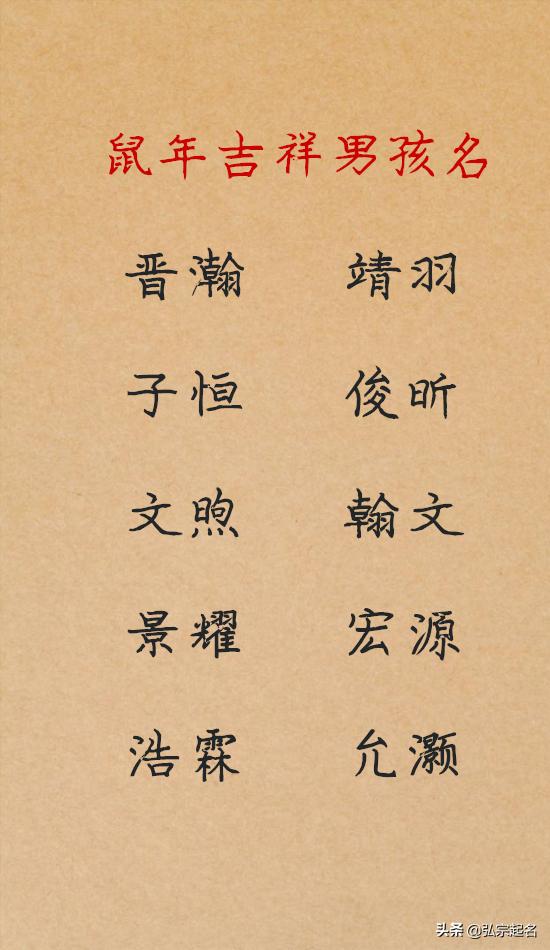 鼠年吉祥男孩名
晋瀚 靖羽
子恒 俊昕
文煦 翰文
景耀 宏源
浩霖 允灏
头条 @弘宗起名